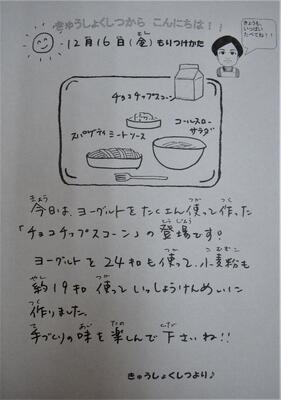 きゅうしょくしつから こんにちは！
きょうも、
いっぱい
たべてね！！
12月16日(金) もりつけかた
チョコチップスコーン
コールスロー
サラダ
スパゲティミートソース
今日は、ヨーグルトをたくさん使って作った
「チョコチップスコーン」の登場です！
ヨーグルトを24キロも使って、小麦粉も
約19キロ使っていっしょうけんめいに
作りました。
手づくりの味を楽しんで下さいね！！
きゅうしょくしつより♪